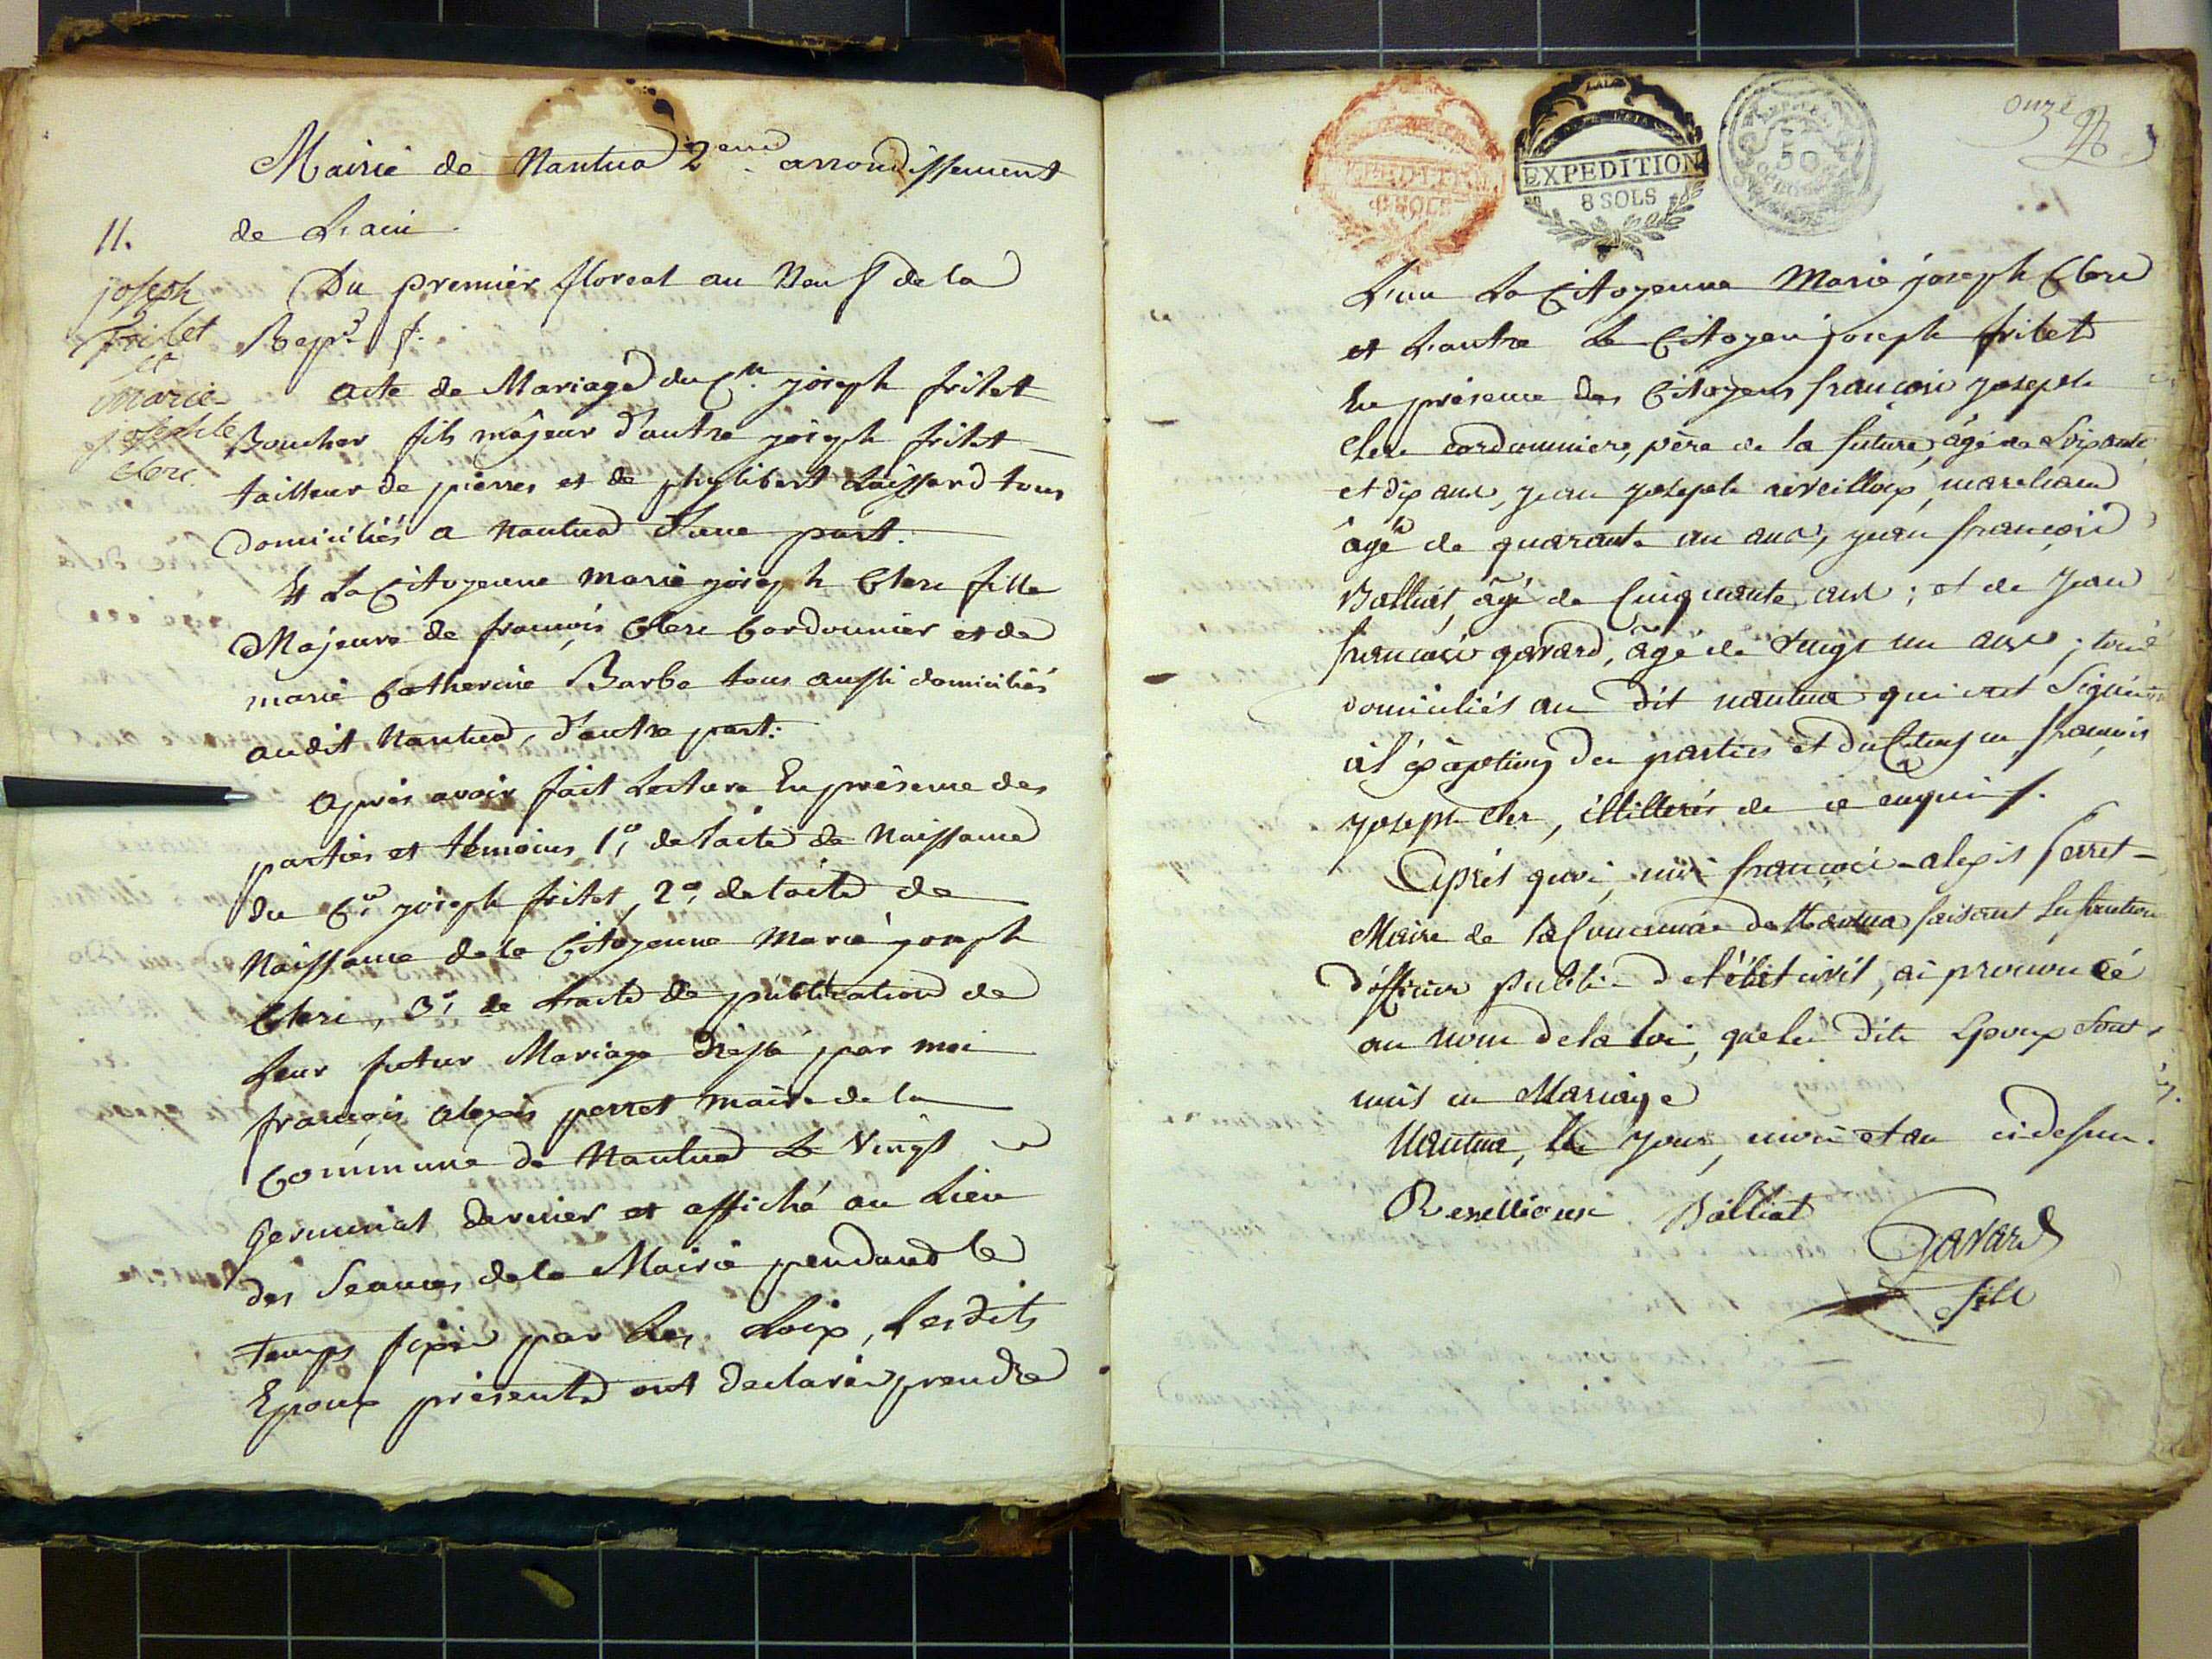 Mairie de Nantua 2eme arrondissement
de L'ain
11.
joseph
frilet
et
marie
josephte
Clerc
Du premier floreal an Neuf de la
Repe f.
acte de Mariage du Cen joseph frilet
Boucher fils màjeur d'autre joseph frilet
tailleur de pierres et de phylibert Laissard tous
domiciliés a Nantua D'une part.
Et La Citoyenne marie joseph Clerc fille
Majeure de françois Clerc Cordonnier et de
marie Catherine Barbe tous aussi domiciliés
audit Nantua, D'autre part:
après avoir fait Lecture En présence des
parties et témoins 1o, de l'acte de Naissance
du Cen joseph frilet, 2o, de l'acte de
Naissance de la Citoyenne Marie joseph
Clerc, 3o, de L'acte de publication de
Leur futur Mariage Dressé par moi
françois alexis perret maire de la
Commune de Nantua Le Vingt
Germinal dernier et affiché au Lieu
des Seances de la Mairie pendand le
temps fixé par Les Loix, Lesdits
Epoux présents ont declaré prendre
EXPEDITION
8 SOLS
EXPEDITION
8 SOLS
50
onze
L'un La Citoyenne Marie joseph Clerc
et L'autre Le Citoyen joseph frilet
En présence des Citoyens françois joseph
Clerc cordonnier, père de la future, âgé de Soixante
et dix ans, jean joseph marchand
âgé de quarante un ans, jean françois
Balliat, âgé de Cinquante ans; et de Jean
françois gavard, âgé de vingt un ans; tous
domiciliés au dit nantua qui ont Signé
à l'exception des parties et du Citoyen françois
joseph Cler, illitterés de ce enquis.
Après quoi, moi françois-alexis Perret
Maire de la Commune de Nantua faisant les fonctions
d'officier Public de l'état civil, ai prononcé
au nom de la loi, que les dits Epoux Sont
unis en Mariage
Nantua, les jour, mois et an ci dessus.
Revellioux Balliat Gavard
fils